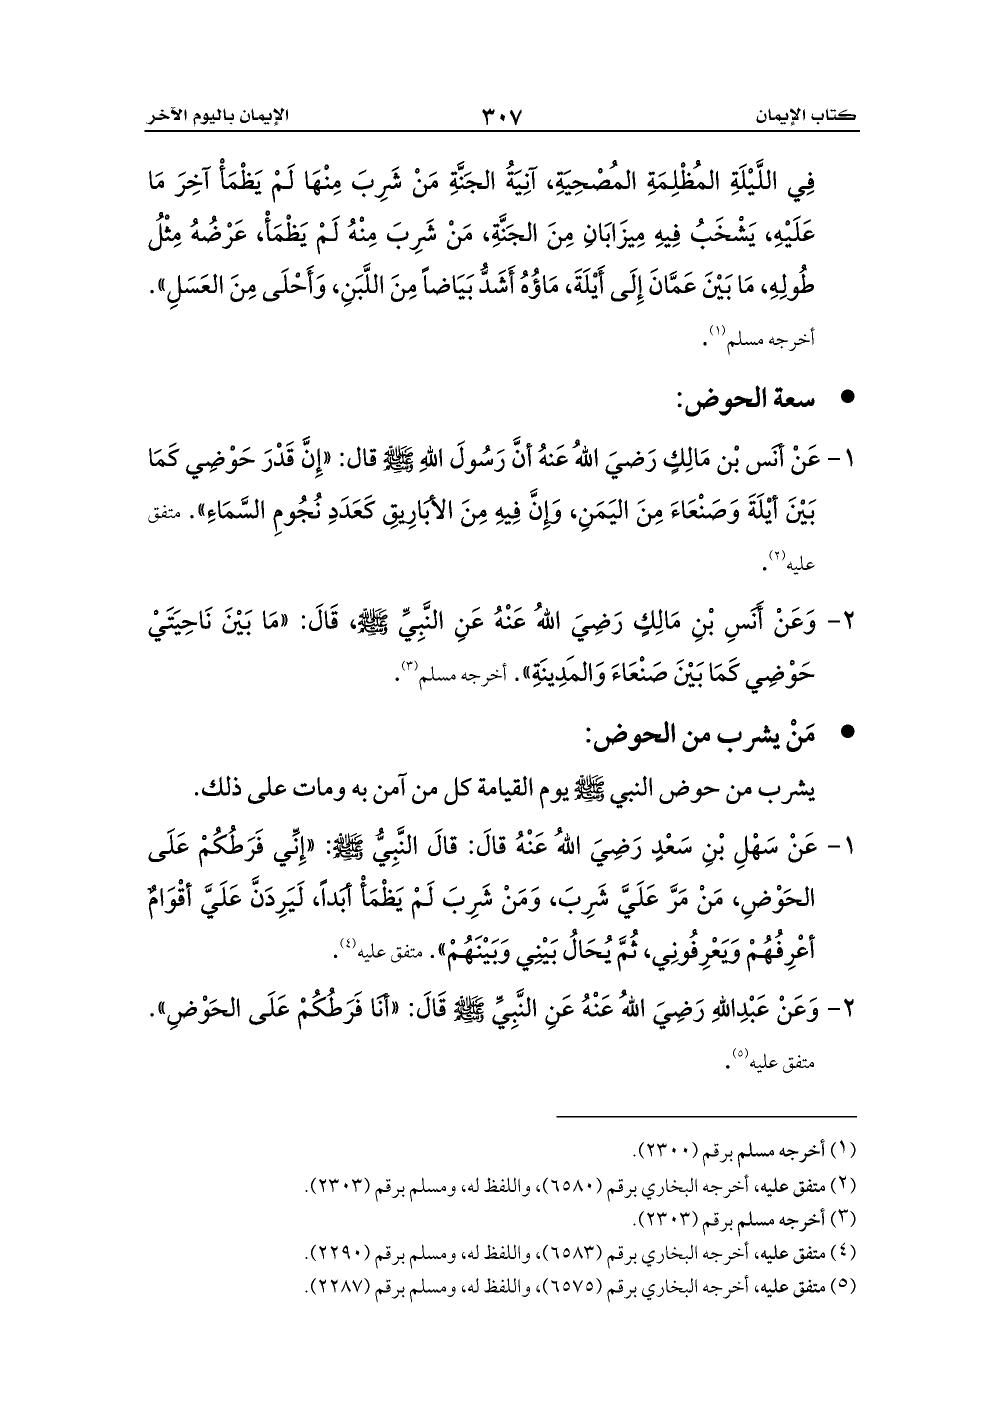 كتاب الإيمان ٣٠٧ الإيمان باليوم الآخر
فِي اللَّيْلَةِ المُظْلِمَةِ المُصْحِيَةِ، آنِيَةُ الجَنَّةِ مَنْ شَرِبَ مِنْهَا لَمْ يَظْمَأْ آخِرَ مَا
عَلَيْهِ، يَشْخَبُ فِيهِ مِيزَابَانِ مِنَ الجَنَّةِ، مَنْ شَرِبَ مِنْهُ لَمْ يَظْمَأْ، عَرْضُهُ مِثْلُ
طُولِهِ، مَا بَيْنَ عَمَّانَ إِلَى أَيْلَةَ، مَاؤُهُ أَشَدُّ بَيَاضاً مِنَ اللَّبَنِ، وَأَحْلَى مِنَ العَسَلِ».
أخرجه مسلم(١).
● سعة الحوض:
١- عَنْ أنَس بْن مَالِكٍ رَضيَ اللهُ عَنهُ أنَّ رَسُولَ اللهِ ﷺ قال: «إِنَّ قَدْرَ حَوْضِي كَمَا
بَيْنَ أيْلَةَ وَصَنْعَاءَ مِنَ اليَمَنِ، وَإِنَّ فِيهِ مِنَ الأبَارِيقِ كَعَدَدِ نُجُومِ السَّمَاءِ». متفق
عليه(٢).
٢- وَعَنْ أَنَسِ بْنِ مَالِكٍ رَضِيَ اللهُ عَنْهُ عَنِ النَّبِيِّ ﷺ، قَالَ: «مَا بَيْنَ نَاحِيَتَيْ
حَوْضِي كَمَا بَيْنَ صَنْعَاءَ وَالمَدِينَةِ». أخرجه مسلم(٣).
● مَنْ يشرب من الحوض:
يشرب من حوض النبي ﷺ يوم القيامة كل من آمن به ومات على ذلك.
١- عَنْ سَهْلِ بْنِ سَعْدٍ رَضِيَ اللهُ عَنْهُ قالَ: قالَ النَّبِيُّ ﷺ: «إِنِّي فَرَطُكُمْ عَلَى
الحَوْضِ، مَنْ مَرَّ عَلَيَّ شَرِبَ، وَمَنْ شَرِبَ لَمْ يَظْمَأْ أبَداً، لَيَرِدَنَّ عَلَيَّ أقْوَامٌ
أعْرِفُهُمْ وَيَعْرِفُونِي، ثُمَّ يُحَالُ بَيْنِي وَبَيْنَهُمْ». متفق عليه(٤).
٢- وَعَنْ عَبْدِاللهِ رَضِيَ اللهُ عَنْهُ عَنِ النَّبِيِّ ﷺ قَالَ: «أنَا فَرَطُكُمْ عَلَى الحَوْضِ».
متفق عليه(٥).
(١) أخرجه مسلم برقم (٢٣٠٠).
(٢) متفق عليه، أخرجه البخاري برقم (٦٥٨٠)، واللفظ له، ومسلم برقم (٢٣٠٣).
(٣) أخرجه مسلم برقم (٢٣٠٣).
(٤) متفق عليه، أخرجه البخاري برقم (٦٥٨٣)، واللفظ له، ومسلم برقم (٢٢٩٠).
(٥) متفق عليه، أخرجه البخاري برقم (٦٥٧٥)، واللفظ له، ومسلم برقم (٢٢٨٧).